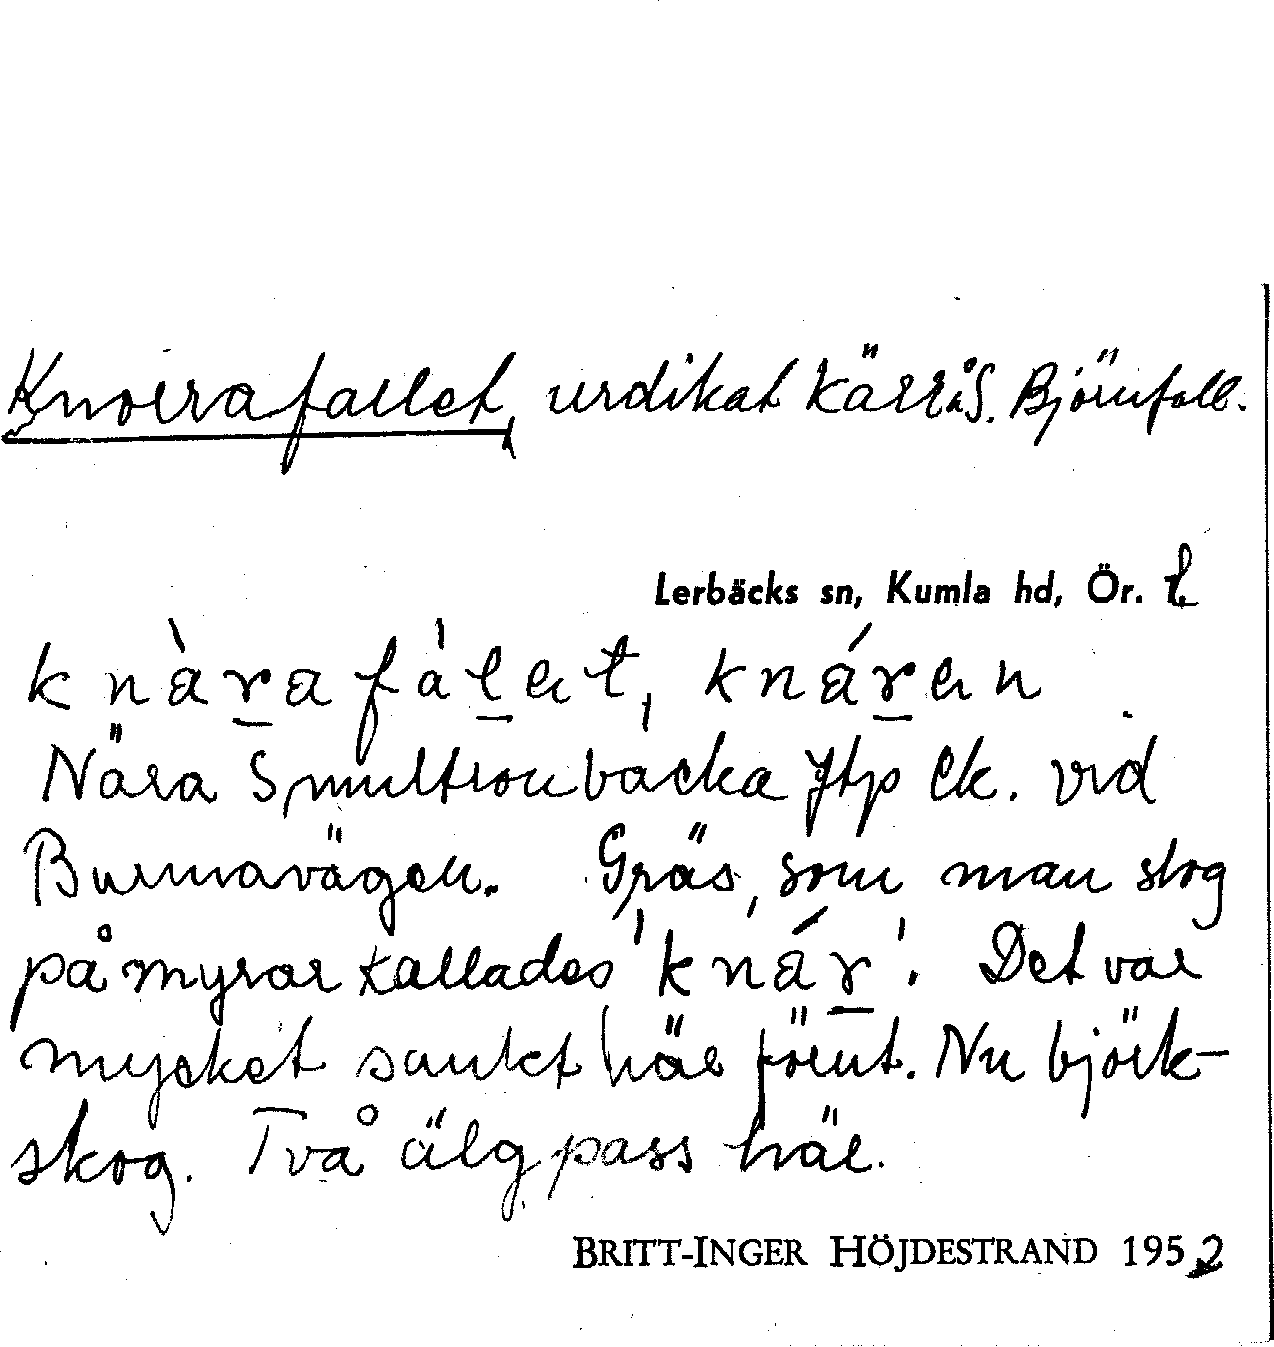 Knorrafallet, urdikat kärr å S. Björnfall.
Lerbäcks sn, Kumla hd, Ör. l.
knàrafàlət, knárən
Nära Smultronbacka ftp ek. vid
Burmavägen. Gräs, som man slog
på myrar kallades 'knár'. Det var
mycket sankt här förut. Nu björk-
skog. Två älgpass här.
BRITT-INGER HÖJDESTRAND 1952